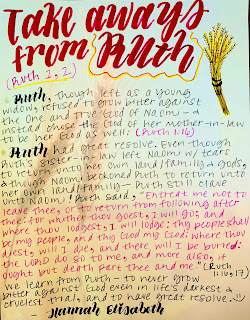 Take aways
from Ruth
(Ruth 1, 2)
Ruth, though left as a young
widow, refused to grow bitter against
the One and True God of Naomi - &
instead chose the God of her mother-in-law
to be her God as well! (Ruth 1:16)
Ruth had great resolve. Even though
his sister-in law left Naomi w/ tears
to return unto her own land, family & gods,
& though Naomi beckoned Ruth to return unto
her own land & family - Ruth still clave
unto Naomi! Ruth said, "Entreat me not to
leave thee, or to return from following after
thee: for whither thou goest, I will go; and
where thou lodgest, I will lodge: thy people shall
be my people, and thy God my God: where thou
diest, will I die, and there will I be buried:
the LORD do so to me, and more also, if
ought but death part thee and me." (Ruth
1:16, 17)
We learn from Ruth - to never grow
bitter against God even in life's darkest &
cruelest trial, and to have great resolve.
- Hannah Elizabeth